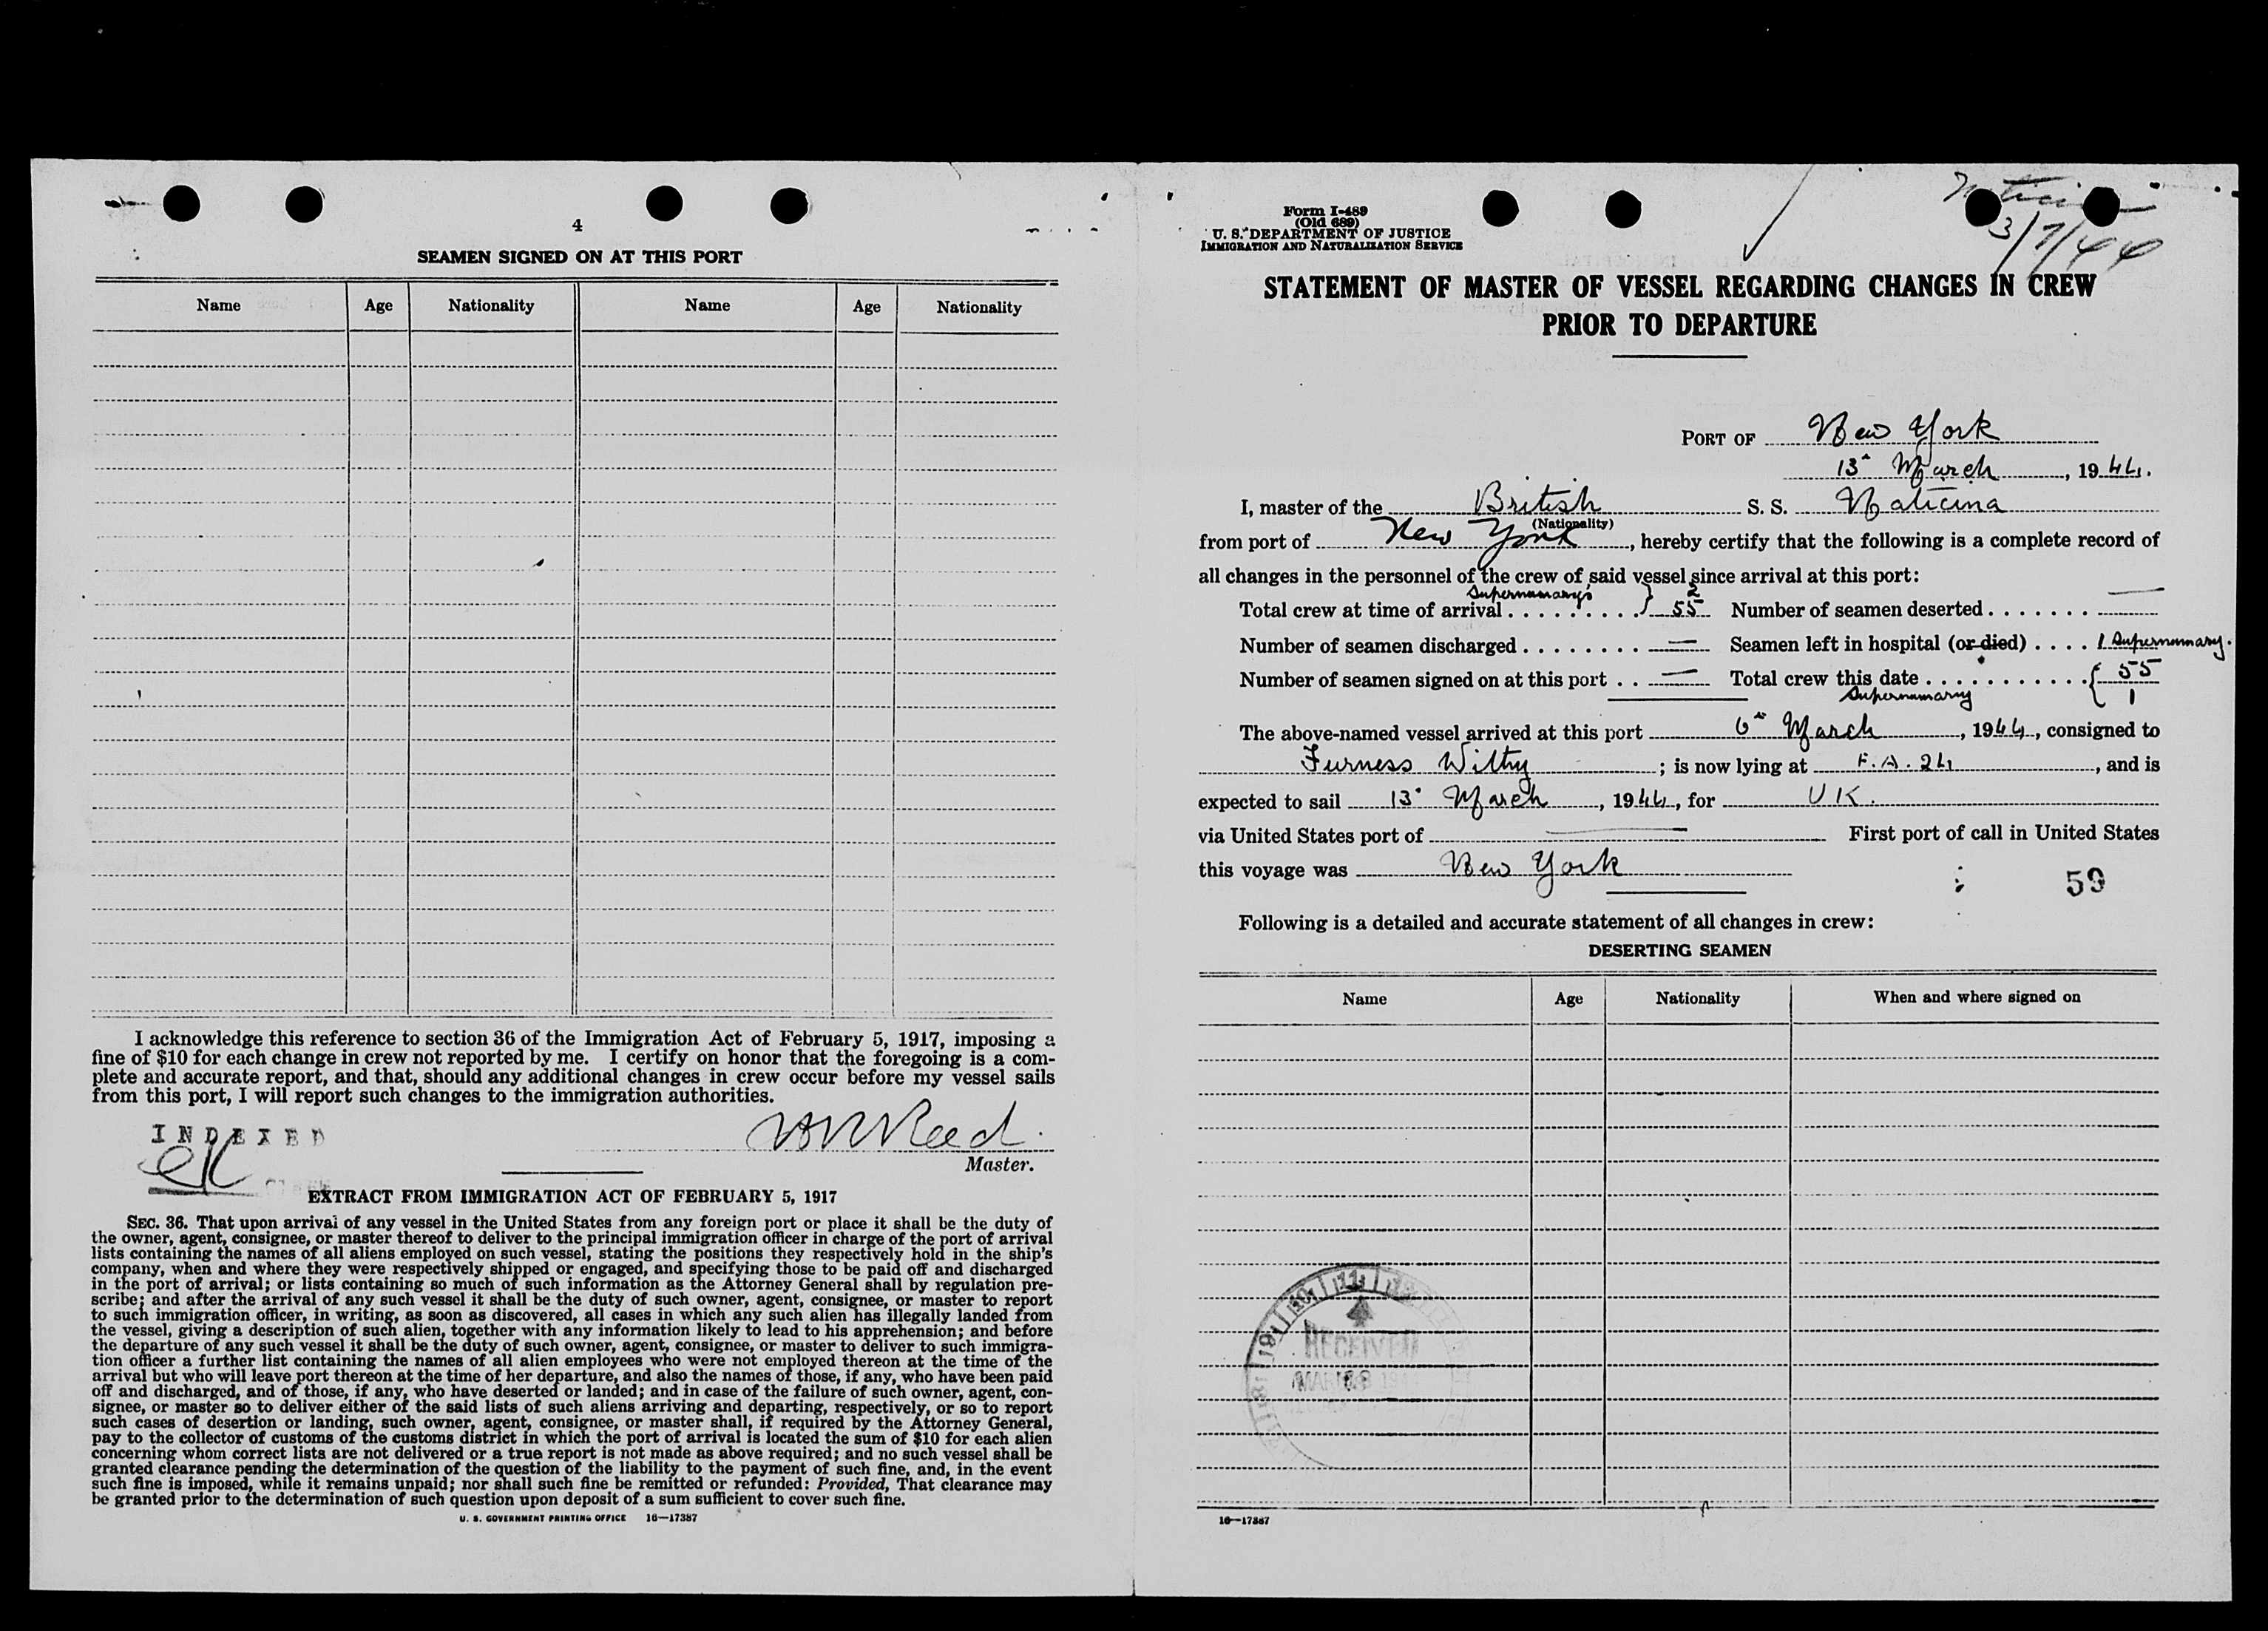 4
SEAMEN SIGNED ON AT THIS PORT
Name Age Nationality Name Age Nationality
I acknowledge this reference to section 36 of the Immigration Act of February 5, 1917, imposing a
fine of $10 for each change in crew not reported by me. I certify on honor that the foregoing is a com-
plete and accurate report, and that, should any additional changes in crew occur before my vessel sails
from this port, I will report such changes to the immigration authorities.
INDEXED
Reed.
Master.
EXTRACT FROM IMMIGRATION ACT OF FEBRUARY 5, 1917
SEC. 36. That upon arrival of any vessel in the United States from any foreign port or place it shall be the duty of
the owner, agent, consignee, or master thereof to deliver to the principal immigration officer in charge of the port of arrival
lists containing the names of all aliens employed on such vessel, stating the positions they respectively hold in the ship's
company, when and where they were respectively shipped or engaged, and specifying those to be paid off and discharged
in the port of arrival; or lists containing so much of such information as the Attorney General shall by regulation pre-
scribe; and after the arrival of any such vessel it shall be the duty of such owner, agent, consignee, or master to report
to such immigration officer, in writing, as soon as discovered, all cases in which any such alien has illegally landed from
the vessel, giving a description of such alien, together with any information likely to lead to his apprehension; and before
the departure of any such vessel it shall be the duty of such owner, agent, consignee, or master to deliver to such immigra-
tion officer a further list containing the names of all alien employees who were not employed thereon at the time of the
arrival but who will leave port thereon at the time of her departure, and also the names of those, if any, who have been paid
off and discharged, and of those, if any, who have deserted or landed; and in case of the failure of such owner, agent, con-
signee, or master so to deliver either of the said lists of such aliens arriving and departing, respectively, or so to report
such cases of desertion or landing, such owner, agent, consignee, or master shall, if required by the Attorney General,
pay to the collector of customs of the customs district in which the port of arrival is located the sum of $10 for each alien
concerning whom correct lists are not delivered or a true report is not made as above required; and no such vessel shall be
granted clearance pending the determination of the question of the liability to the payment of such fine, and, in the event
such fine is imposed, while it remains unpaid; nor shall such fine be remitted or refunded: Provided, That clearance may
be granted prior to the determination of such question upon deposit of a sum sufficient to cover such fine.
U. S. GOVERNMENT PRINTING OFFICE 16—17387
Form I-489
(Old 689)
U. S. DEPARTMENT OF JUSTICE
IMMIGRATION AND NATURALIZATION SERVICE
3/7/44
STATEMENT OF MASTER OF VESSEL REGARDING CHANGES IN CREW
PRIOR TO DEPARTURE
PORT OF New York
13th March, 1944.
I, master of the British S. S. Naticina
(Nationality)
from port of New York, hereby certify that the following is a complete record of
all changes in the personnel of the crew of said vessel since arrival at this port:
Supernumarys 2
Total crew at time of arrival 55 Number of seamen deserted —
Number of seamen discharged — Seamen left in hospital (or died) 1 Supernumary.
Number of seamen signed on at this port — Total crew this date 55
Supernumary 1
The above-named vessel arrived at this port 6th March, 1944, consigned to
Furness Withy; is now lying at F.A. 24, and is
expected to sail 13th March, 1944, for U K.
via United States port of — First port of call in United States
this voyage was New York
59
Following is a detailed and accurate statement of all changes in crew:
DESERTING SEAMEN
Name Age Nationality When and where signed on
RECEIVED
16—17387